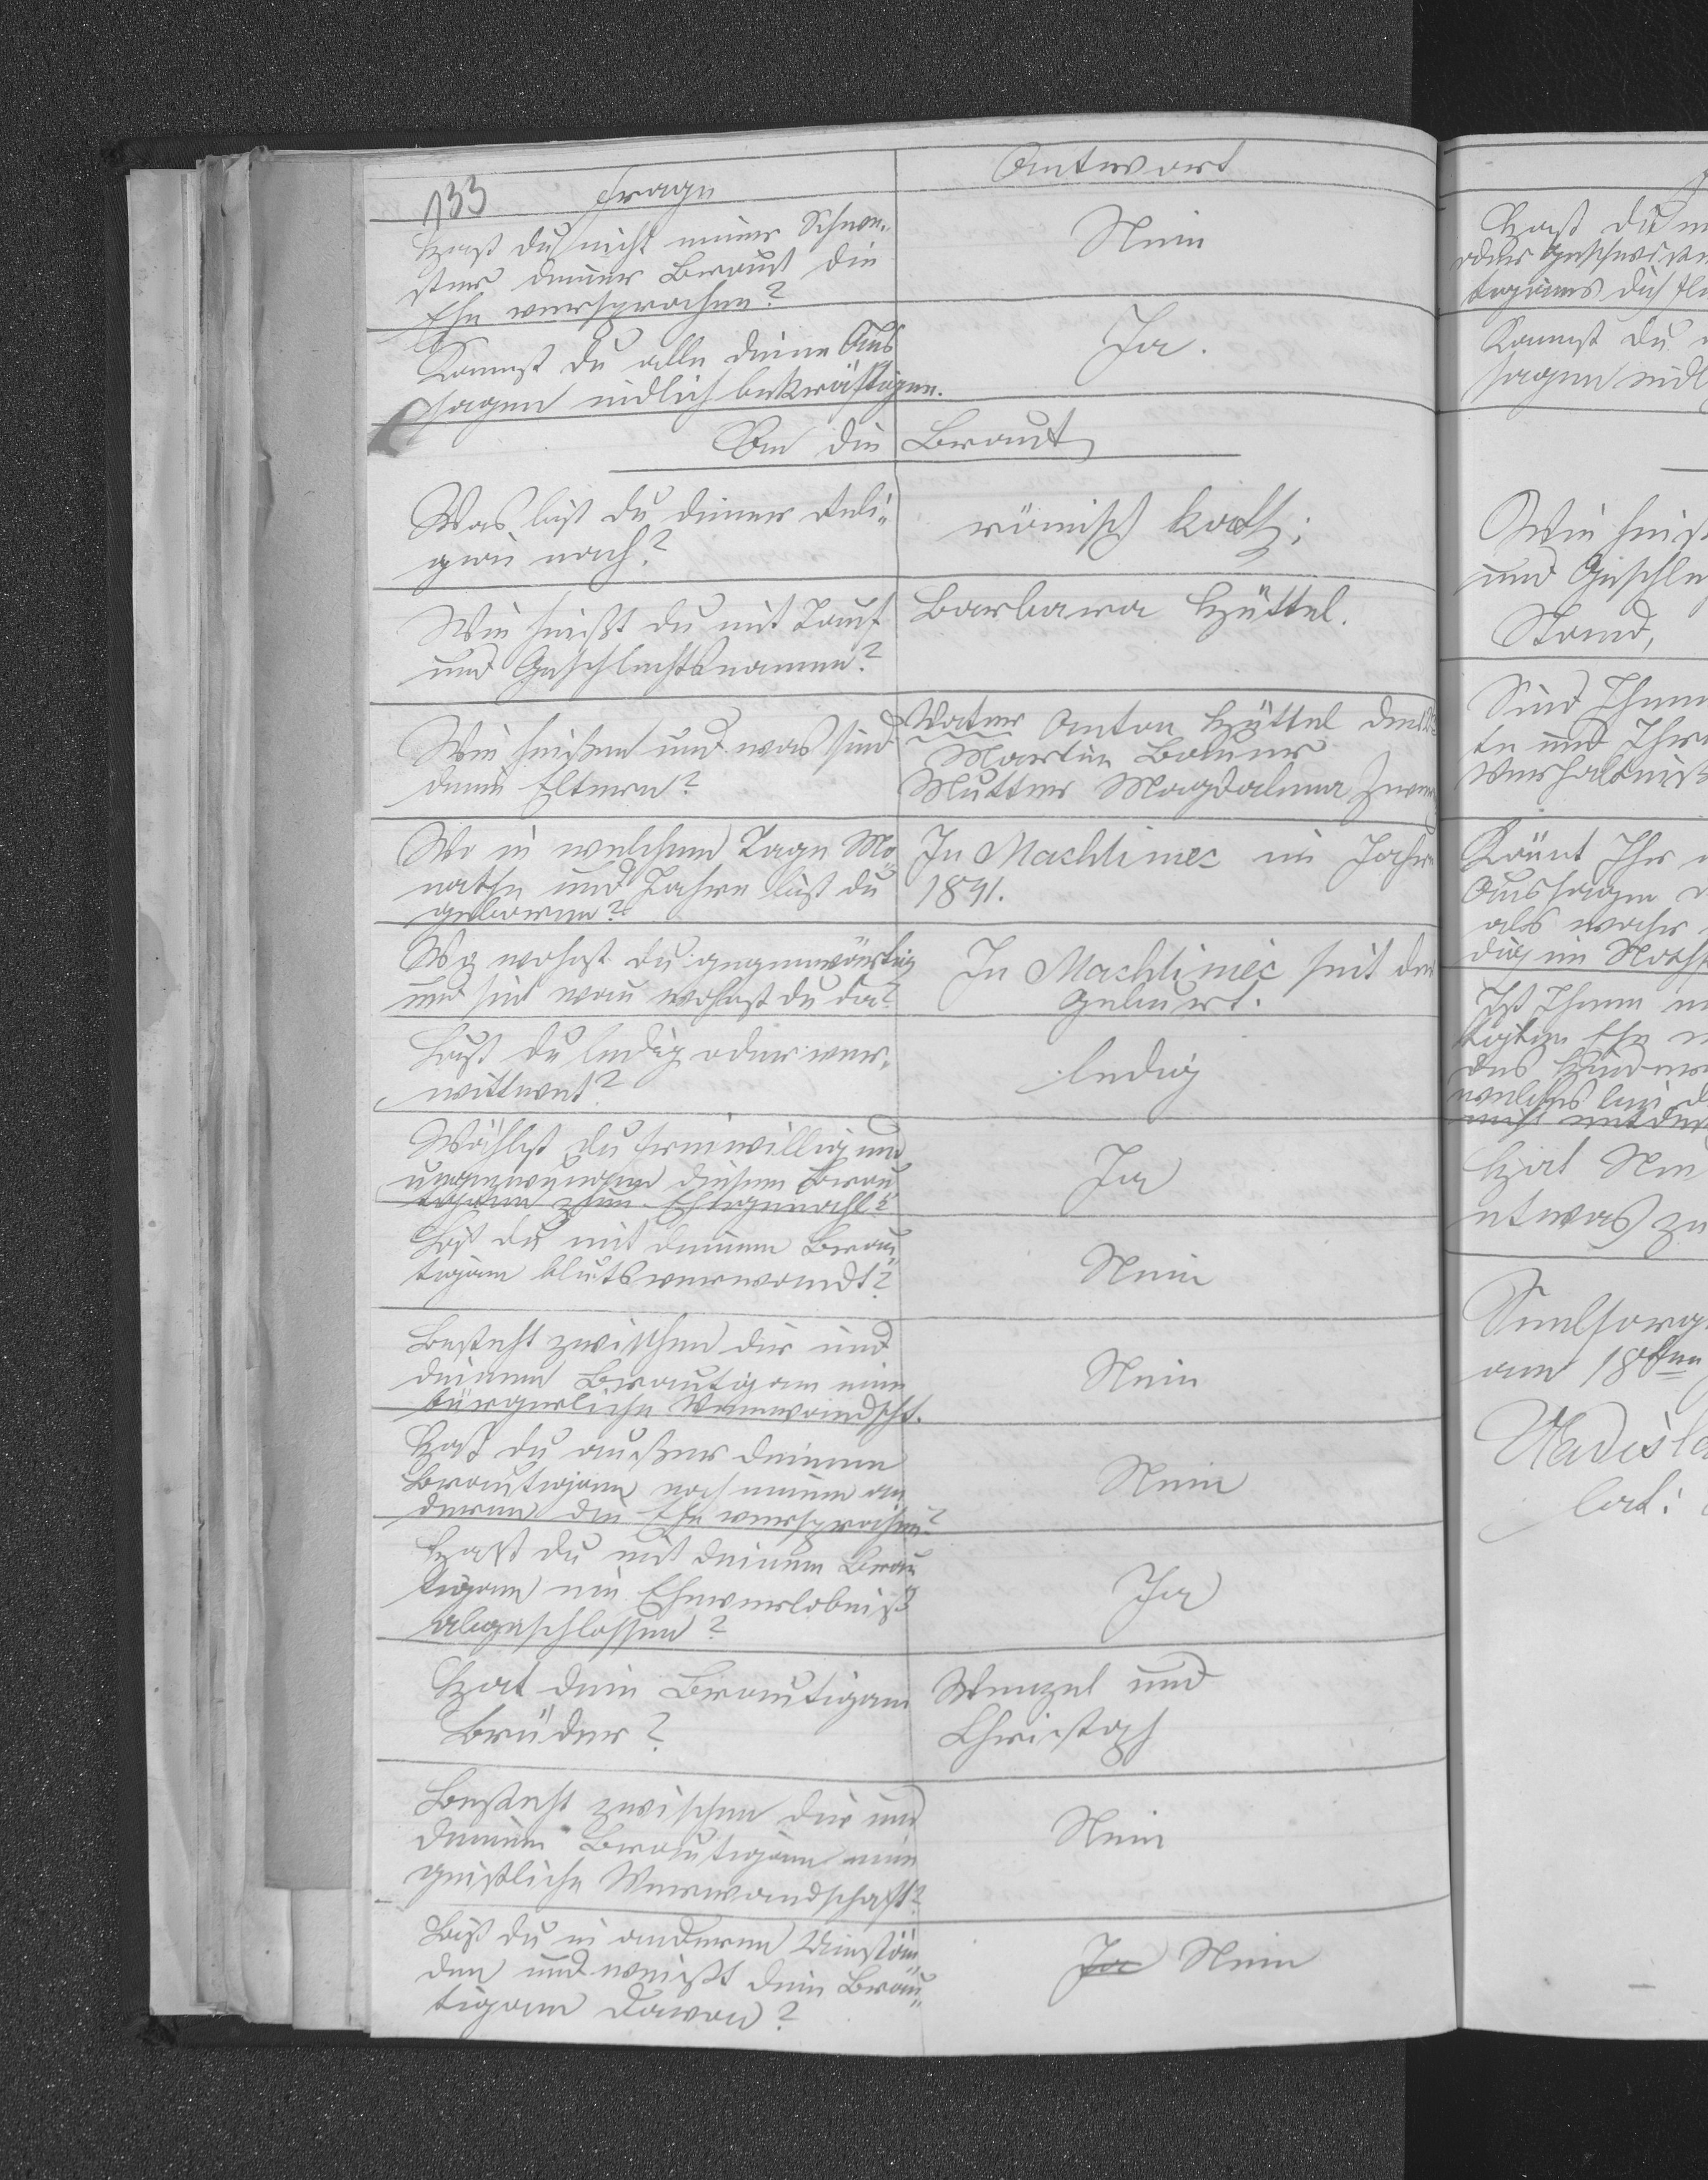 133 Frage
Antwort
Hast du nicht einer Schwe-
ster deiner Braut die
Ehe versprochen?
Nein
Kannst du alle deine Aus
sagen eidlich bekräftigen.
Ja.
An die Braut
Was bist du deiner Reli-
gion nach?
römisch kath:
Wie heißt du mit Tauf
und Geschlechtsnamen?
Barbara Hüttel.
Wie heißen und was sind
deine Eltern?
Vater Anton Hüttel des
Martin Bauer
Mutter Magdalena
Wo in welchem Tage Mo-
nathe und Jahre bist du
geboren?
In Machtinec im Jahre
1891.
Wo wohnst du gegenwärtig
und seit wan wohnst du da?
In Machtinec seit der
Geburt.
Bist du ledig oder ver-
wittwet?
ledig
Wählst du freiwillig und
ungezwungen diesen Bräu
tigam zum Ehegemahl?
Ja
Bist du mit deinem Bräu
tigam blutsverwandt?
Nein
Besteht zwischen dir und
deinem Bräutigam eine
bürgerliche Verwandsch.
Nein
Hast du außer deinem
Bräutigam noch einem an
deren die Ehe versprochen?
Nein
Hast du mit deinem Bräu
tigam ein Eheverlobniß
abgeschlossen?
Ja
Hat dein Bräutigam
Brüder?
Wenzel und
Christoph
Besteht zwischen dir und
deinem Bräutigam eine
geistliche Verwandschaft?
Nein
Bist du in anderen Umstän-
den und weißt dein Bräu-
tigam davon?
Ja Nein
Hast du
oder Geschwiste
tigams dich fl
Kannst du
sagen eidl
Wie heiß
und Geschle
Stand,
Sind Ihnen
te und Ihre
Verhältniß
Könnt Ihr
Aussagen
als wahr
dig im Noth
Ist Ihnen
tigten Ehe
das Hinder
welches bei d
nicht entdec
Hat
etwas zu
Seelsorg
am 18ten
Wadisla
lok: